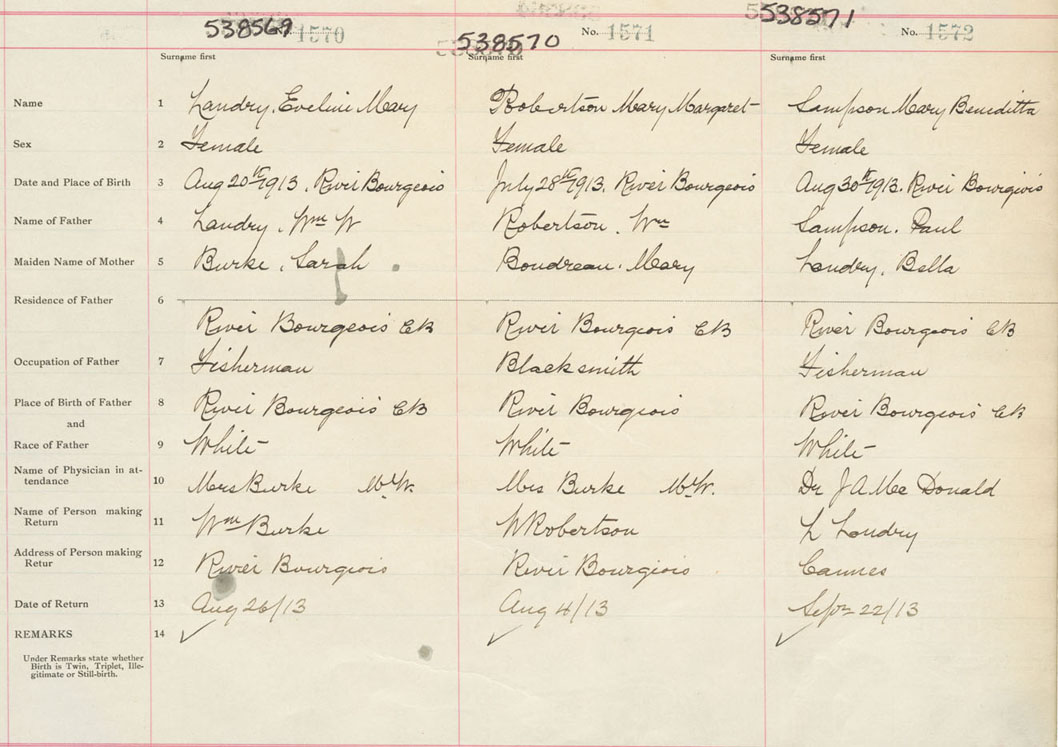 538569 1570 538570 No. 1571 538571 No. 1572
Surname first Surname first Surname first
Name 1 Landry, Eveline Mary Robertson Mary Margaret Sampson Mary Beneditta
Sex 2 Female Female Female
Date and Place of Birth 3 Aug 20th 1913, River Bourgeois July 28th 1913, River Bourgeois Aug 30th 1913, River Bourgeois
Name of Father 4 Landry, Wm W Robertson, Wm Sampson, Paul
Maiden Name of Mother 5 Burke, Sarah Boudreau, Mary Landry, Bella
Residence of Father 6
River Bourgeois CB River Bourgeois CB River Bourgeois CB
Occupation of Father 7 Fisherman Blacksmith Fisherman
Place of Birth of Father 8 River Bourgeois CB River Bourgeois River Bourgeois CB
and
Race of Father 9 White White White
Name of Physician in at-
tendance 10 Mrs Burke M.W. Mrs Burke M.W. Dr J A Mac Donald
Name of Person making
Return 11 Wm Burke W Robertson L Landry
Address of Person making
Retur 12 River Bourgeois River Bourgeois Cannes
Date of Return 13 Aug 26/13 Aug 4/13 Sept 22/13
REMARKS 14
Under Remarks state whether
Birth is Twin, Triplet, Ille-
gitimate or Still-birth.